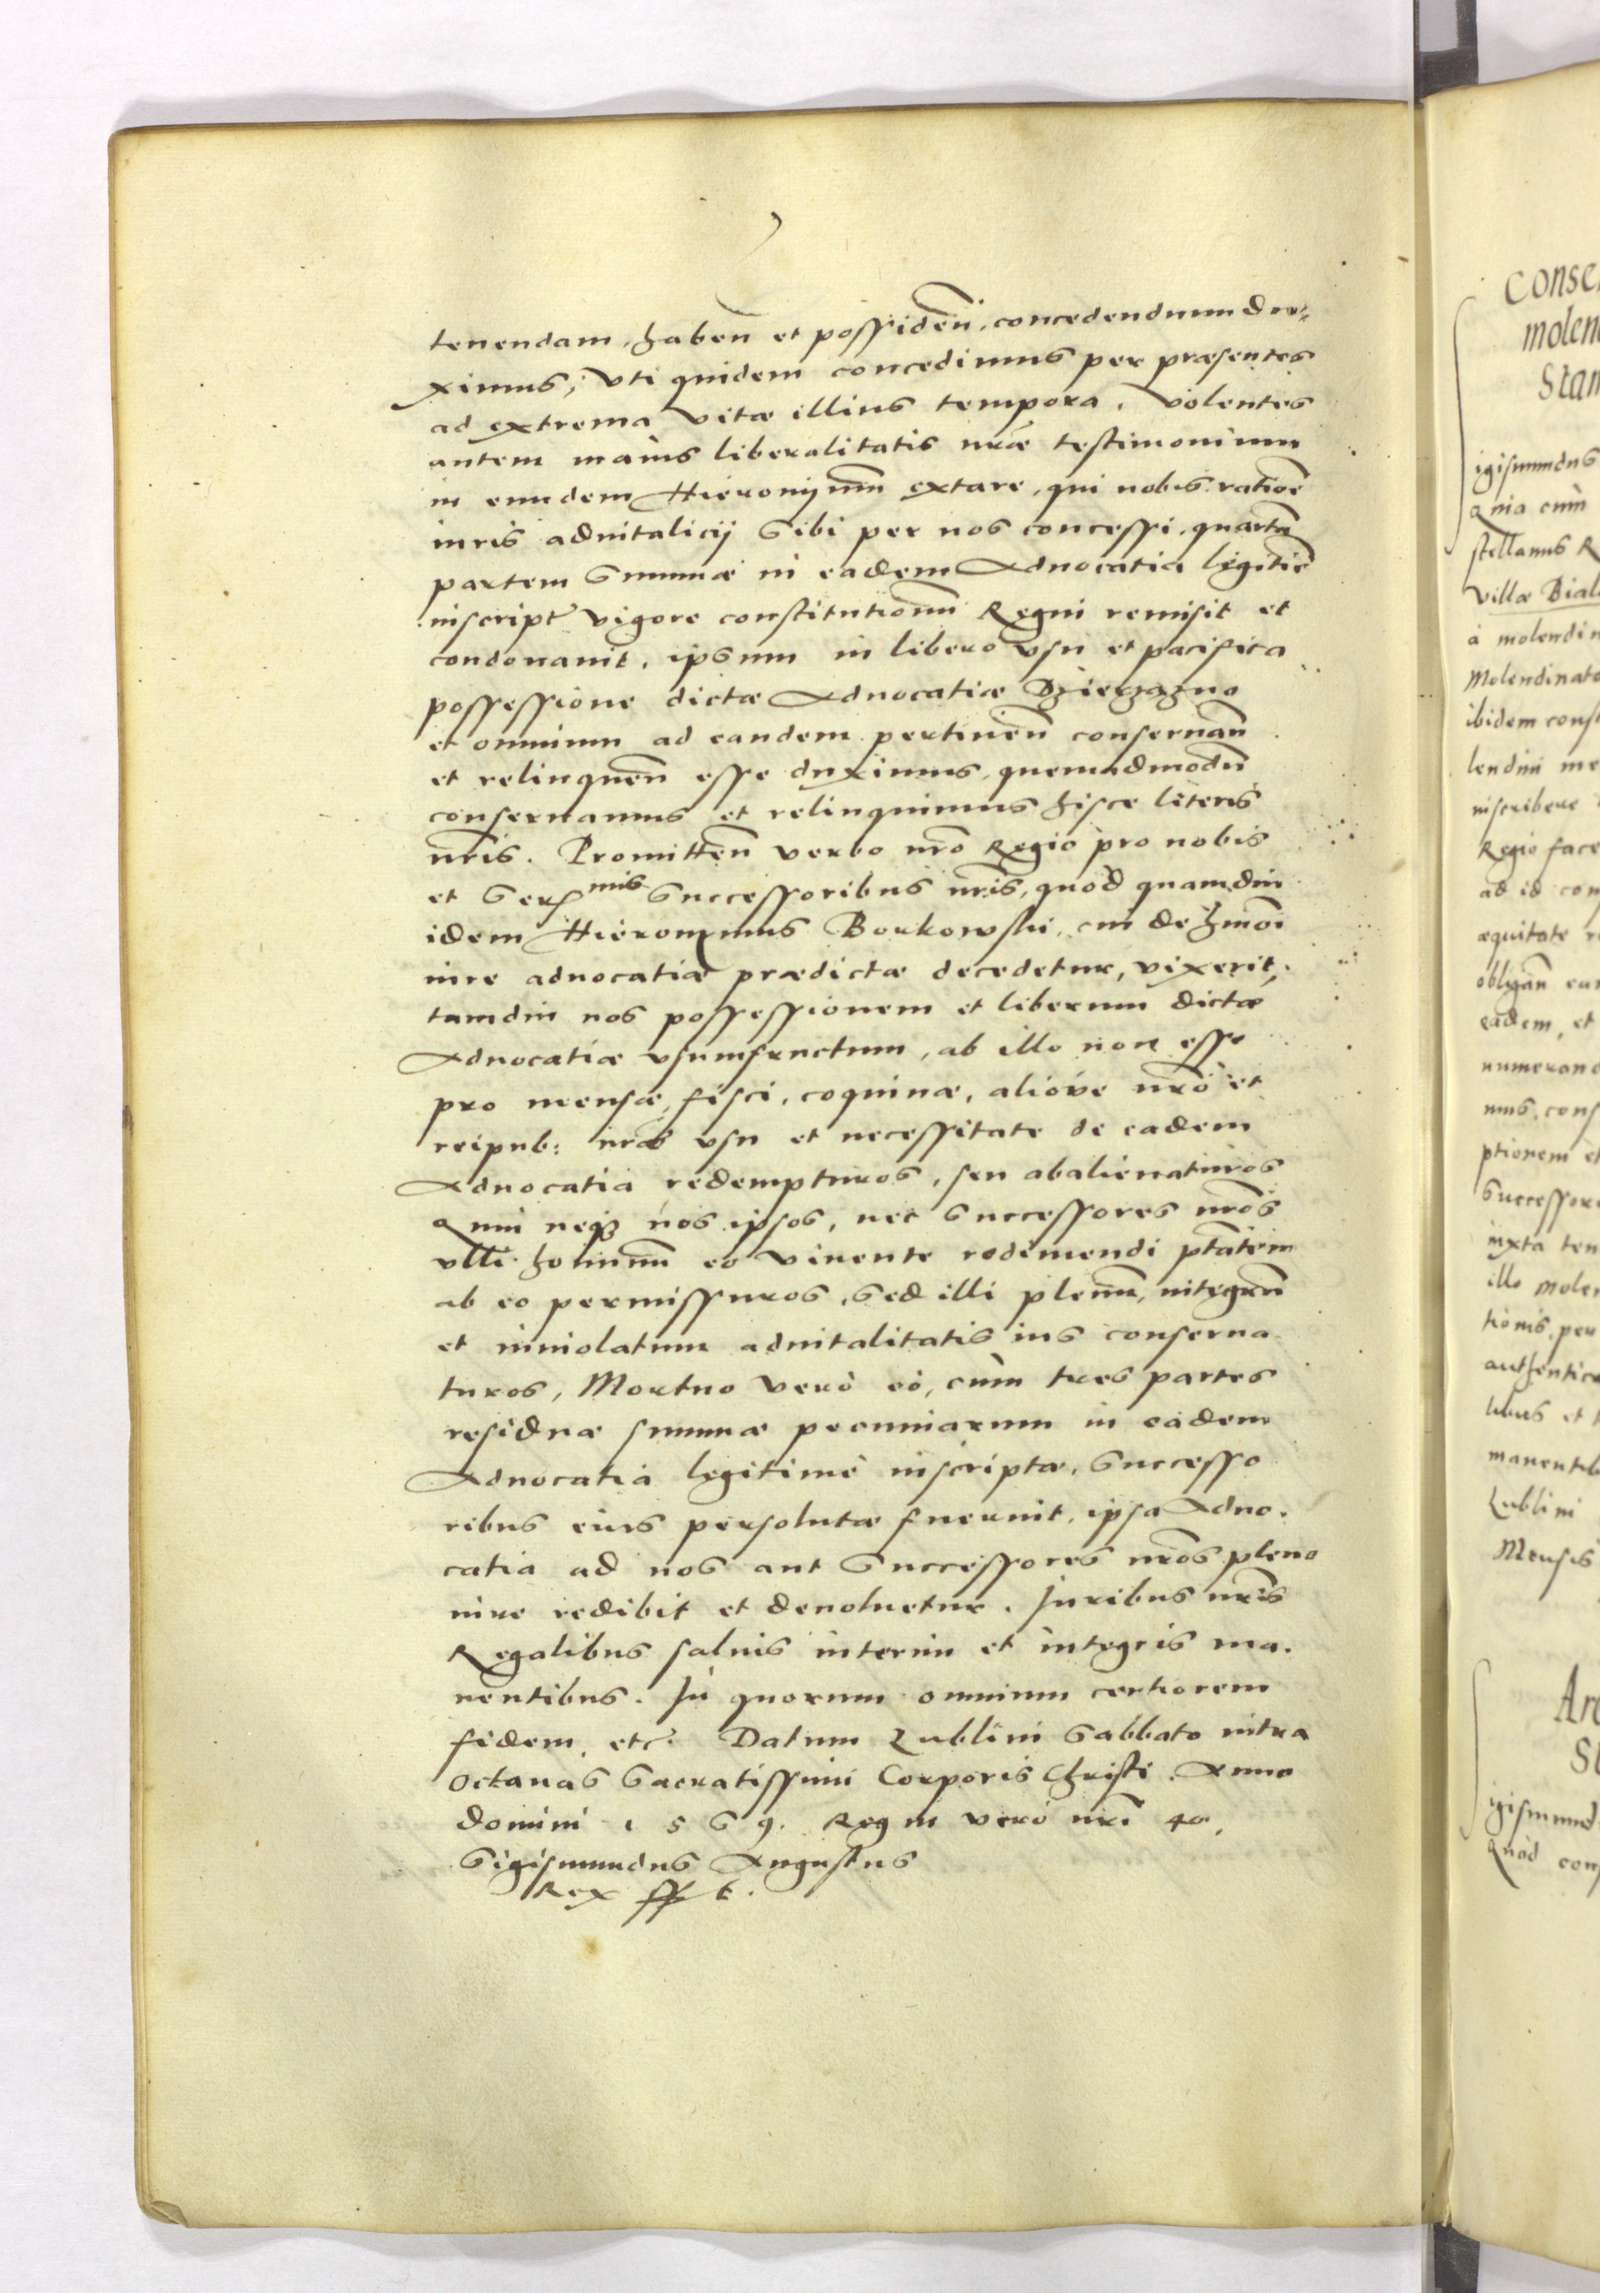 tenendam, haben̄ et possiden̄, concedendum du-
ximus, vti quidem concedimus per præsentes
ad extrema vitæ illius tempora. Volentes
autem maius liberalitatis nr̄æ testimonium
in eundem Hieronijmū extare, qui nobis ratione
iuris aduitalicij sibi per nos concessi, quartā
partem summæ in eadem Aduocatia legitime
inscript. vigore constitutionū Regni remisit et
condonauit, ipsum in libero vsu et pacifica
possessione dictæ Aduocatiæ Dzierzązno
et omnium ad eandem pertinen̄ conseruan̄
et relinquen̄ esse duximus, quemadmodū
conseruamus et relinquimus hisce literis
nr̄is. Promitten̄ verbo nr̄o Regio pro nobis
et Serssmis Successoribus nr̄is, quod quamdiu
idem Hieronymus Borkowski, cui de hmōi
iure aduocatiæ prædictæ decedetur, vixerit,
tamdiu nos possessionem et liberum dictæ
Aduocatiæ vsumfructum, ab illo non esse
pro mensæ, fisci, coquinæ, aliove nr̄o et
reipub: nr̄æ vsu et necessitate de eadem
Aduocatia redempturos, seu abalienaturos
quin neq3 nos ipsos, nec successores nr̄os
vlli hominū eo viuente redimendi ptātem
ab eo permissuros, sed illi plenū, integrū
et inuiolatum aduitalitatis ius conserua
turos, Mortuo verò eò, cùm tres partes
residuæ summæ pecuniarum in eadem
Aduocatia legitimè inscriptæ, Successo
ribus eius persolutæ fuerint, ipsa Aduo.
catia ad nos aut Successores nr̄os pleno
iure redibit et deuoluetur. Juribus nr̄is
Regalibus saluis interim et integris ma.
nentibus. In quorum omnium certiorem
fidem, etc. Datum Lublini Sabbato intra
Octauas Sacratissimi Corporis Christi. Anno
domini 1569. Regni verò nr̄i 40.
Sigismundus Augustus
Rex sst.
Conse
molen
Stan
igismundus
Quia cum
stellanus R
villæ Bial
à molendin
Molendinato
ibidem const
lendini me
inscribere
Regio face
ad id con
æquitate r
obligan̄ ear
eadem, et
numerand
mus, cons
ptionem et
Successor
iuxta ten
illo Molen
tionis, per
authentica
libus et
manentib
Lublini
Mensis
Are
St
igismund
Quod cons